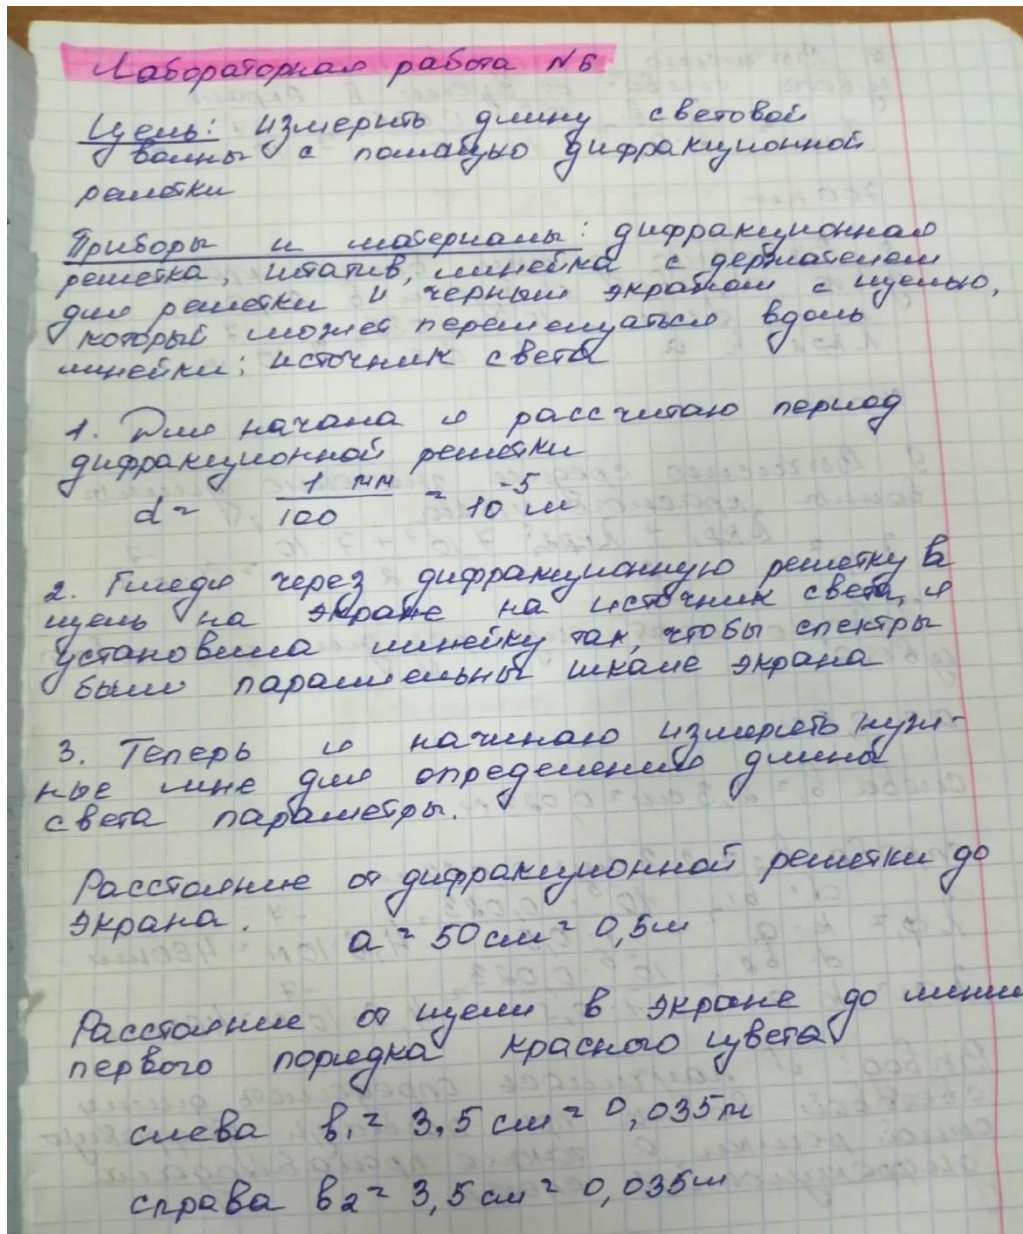 Лабораторная работа №6
Цель: измерить длину световой
волны с помощью дифракционной
решетки
Приборы и материалы: дифракционная
решетка, штатив, линейка с держателем
для решетки и черным экраном с щелью,
который может перемещаться вдоль
линейки; источник света
1. Для начала я рассчитаю период
дифракционной решетки
d = 1 мм / 100 = 10^-5 м
2. Глядя через дифракционную решетку и
щель на экране на источник света, я
установила линейку так, чтобы спектры
были параллельны шкале экрана
3. Теперь я начинаю измерять нуж-
ные мне для определения длины
света параметры.
Расстояние от дифракционной решетки до
экрана.
a = 50 см = 0,5 м
Расстояние от щели в экране до линии
первого порядка красного цвета
слева b1 = 3,5 см = 0,035 м
справа b2 = 3,5 см = 0,035 м